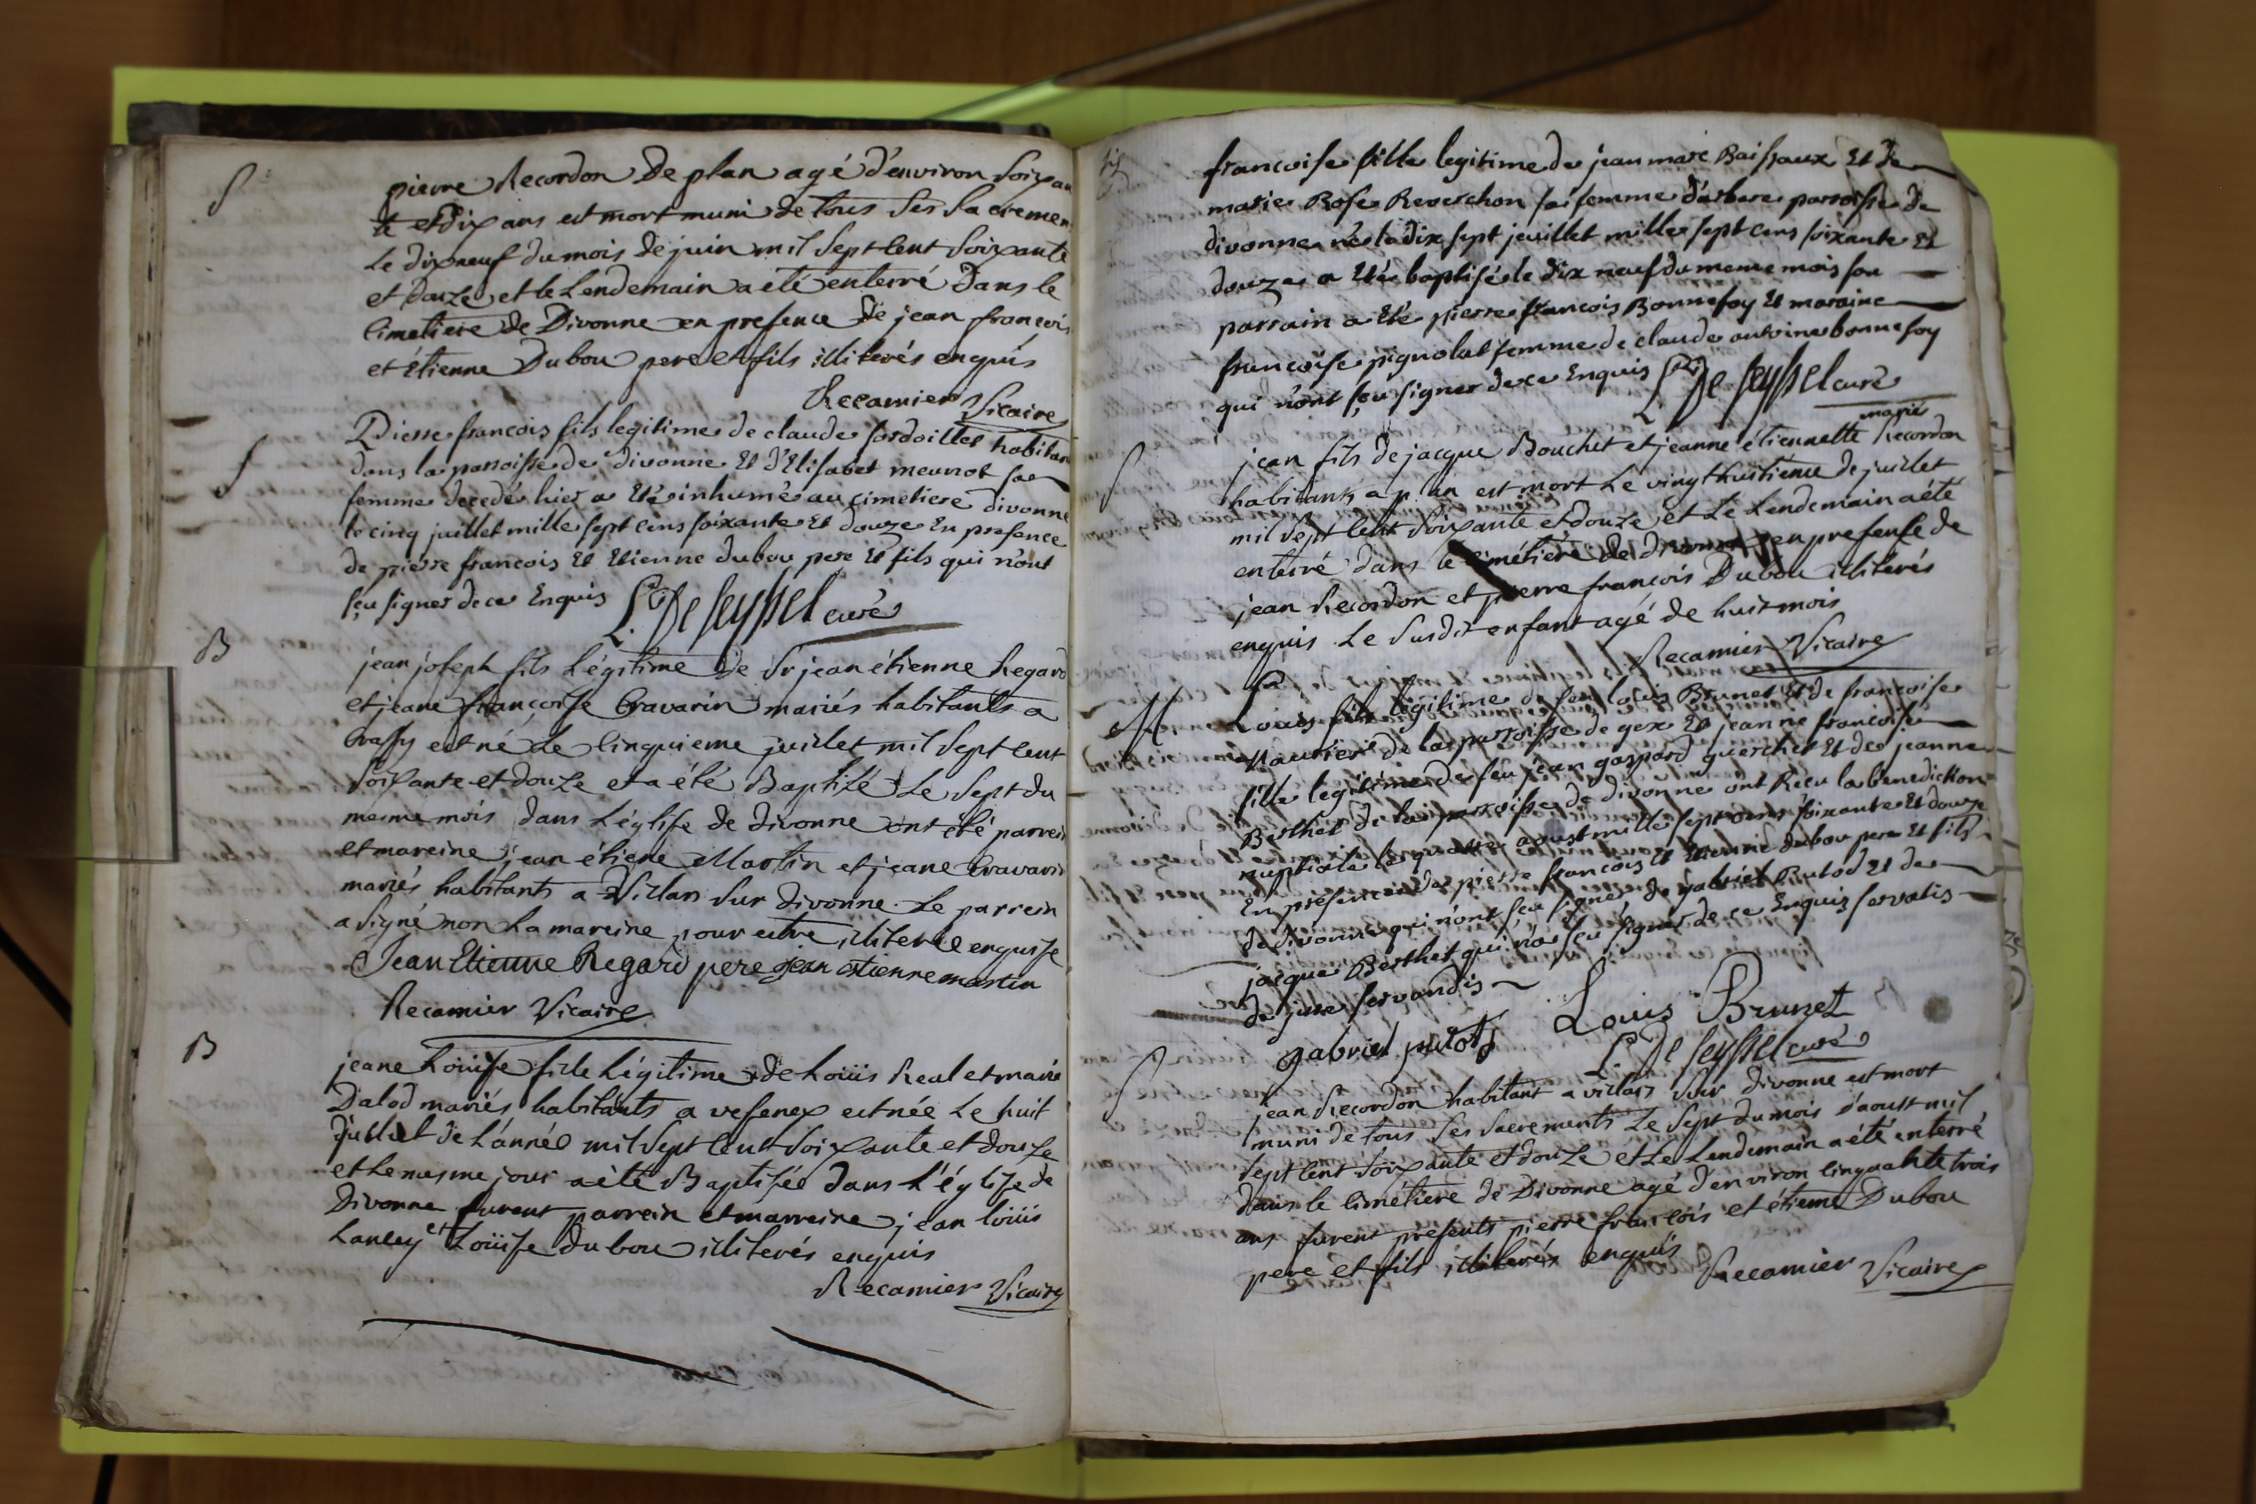 S
pierre Recordon De plan agé d'environ Soixan
te et Dix ans est mort muni de tous Ses Sacremen
Le dix neuf du mois de juin mil Sept Cent Soixante
et douze, et le Lendemain a été enterré Dans le
Cimetiere de Divonne en presence de jean françois
et étienne Dubou pere et fils illiterés enquis
Recamier Vicaire
S
Pierre francois fils legitime de claude fordoillet habitan
dans la parroisse de divonne Et d'Elisabet meunot sa
femme decedé hier a Eté inhumé au cimetiere divonne
le cinq juillet mille sept cens soixante Et douze En presence
de pierre francois Et Etienne dubou pere Et fils qui n'ont
sçu signer de ce Enquis De Seyssel curé
B
jean joseph fils Légitime de Sr jean étienne Regard
et jeane françoise Cravarin mariés habitants a
Crassy est né Le Cinquieme juillet mil Sept Cent
Soixante et douze et a été Baptizé Le Sept du
mesme mois dans L'église de divonne ont été parrein
et mareine jean étiene Martin et jeane Cravarin
mariés habitants a Villars Sur divonne. Le parrein
a Signé non La mareine pour estre illiterée enquise
Jean Etienne Regard pere jean estienne martin
Recamier Vicaire
B
jeane Loüise fille Légitime de Loüis Real et marie
Dalod mariés habitants a vesenex est née Le huit
juillet de L'année mil Sept Cent Soixante et douze
et Le mesme jour a été Baptisée dans L'église de
Divonne furent parrein et marreine jean loüis
Lancey et Loüise dubou illiterés enquis
Recamier Vicaire
francoise fille legitime de jean marc Baissaux Et de
marie Rose Reverchon sa femme d'arbere parroisse de
divonne née le dix sept jeuillet mille sept cens soixante Et
douze a Eté baptisée le dix neuf du meme mois son
parrain a Eté pierre francois Bonnefoy Et maraine
francoise pignolat femme de claude antoine bonnefoy
qui n'ont sçu signer de ce Enquis De Seyssel curé
S
mariés
jean fils de jacque Bouchet et jeanne étiennette Recordon
habitants a plan est mort Le vingt huitieme de juillet
mil Sept Cent Soixante et douze et Le Lendemain a été
enterré dans le Cimétiere de divonne en presense de
jean Recordon et pierre françois Dubou illiterés
enquis. Le Susdit enfant agé de huit mois
Recamier Vicaire
M
Louis fils legitime de feu louis Brunet Et de francoise
de la parroisse de gex Et jeanne francoise
fille legitime de feu jean gaspard querchet Et de jeanne
Berthet de la parroisse de divonne ont Recu la benediction
nuptiale le quatre aoust mille sept cens soixante Et douze
En presence de pierre francois Et Etienne dubou pere Et fils
de divonne qui n'ont sçu signer de gabriel Butod Et de
jacque Berthet qui n'a sçu signer de ce Enquis servatis
de jure servandis
gabriel putot Louis Brunet
De Seyssel curé
S
jean Recordon habitant a villars Sur divonne est mort
muni de tous Ses Sacrements Le Sept du mois d'aoust mil
Sept Cent Soixante et douze et Le Lendemain a été enterré
dans le Cimétiere de Divonne agé d'environ Cinquante trois
ans furent presents pierre françois et étienne Dubou
pere et fils illiterés enquis
Recamier Vicaire